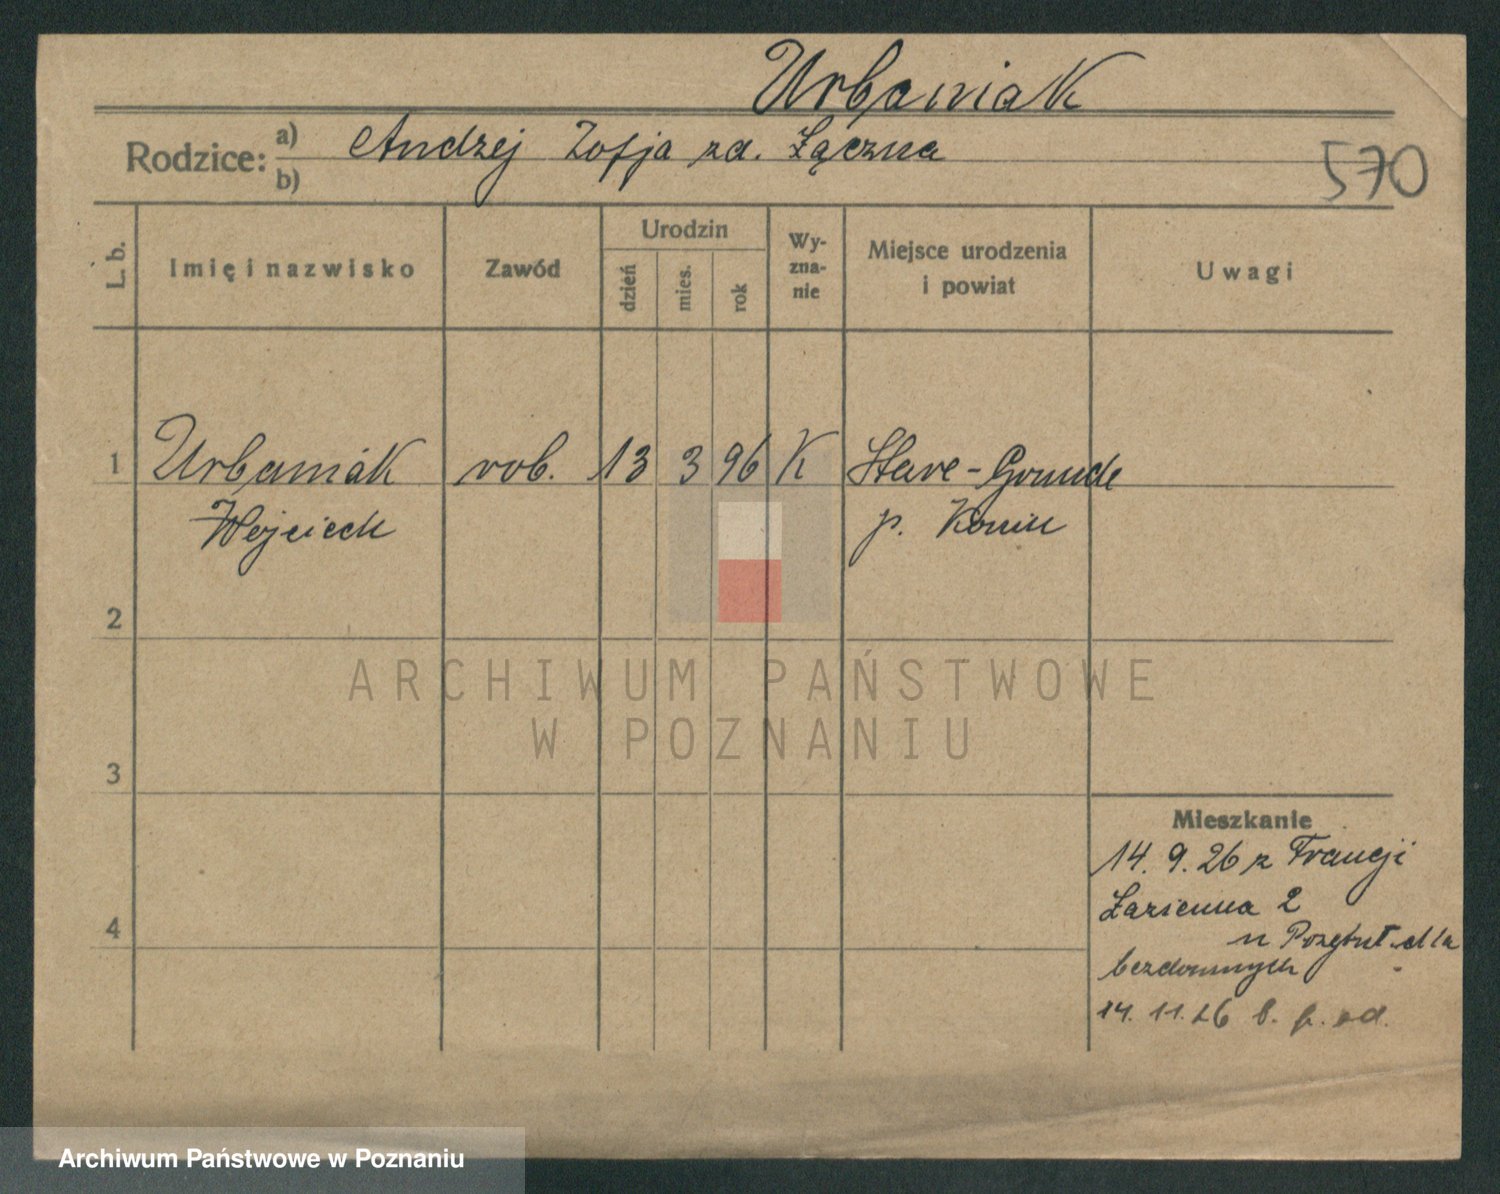 Urbaniak
Rodzice: a) Andrzej Zofja zd. Łączna
b)
570
L. b. Imię i nazwisko Zawód Urodzin dzień mies. rok Wy-zna-nie Miejsce urodzenia i powiat Uwagi
1 Urbaniak rob. 13 3 96 K Stare-Grunde
Wojciech p. Konin
2
3
4
Mieszkanie
14. 9. 26 z Francji
Łazienna 2
u Przytuł. dla
bezdomnych
14. 11. 26 b. p. od.
ARCHIWUM PAŃSTWOWE
W POZNANIU
Archiwum Państwowe w Poznaniu